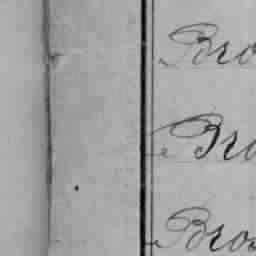 Bro
Bro
Bros